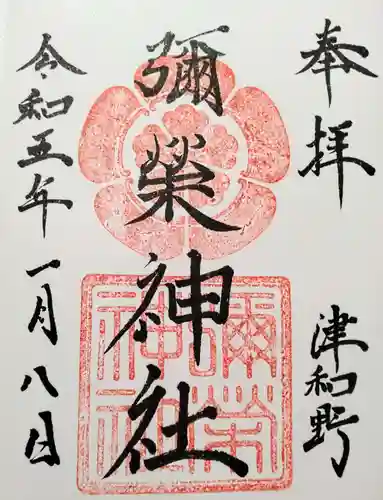 奉拝
津和野
彌榮神社
令和五年一月八日
彌榮
神社